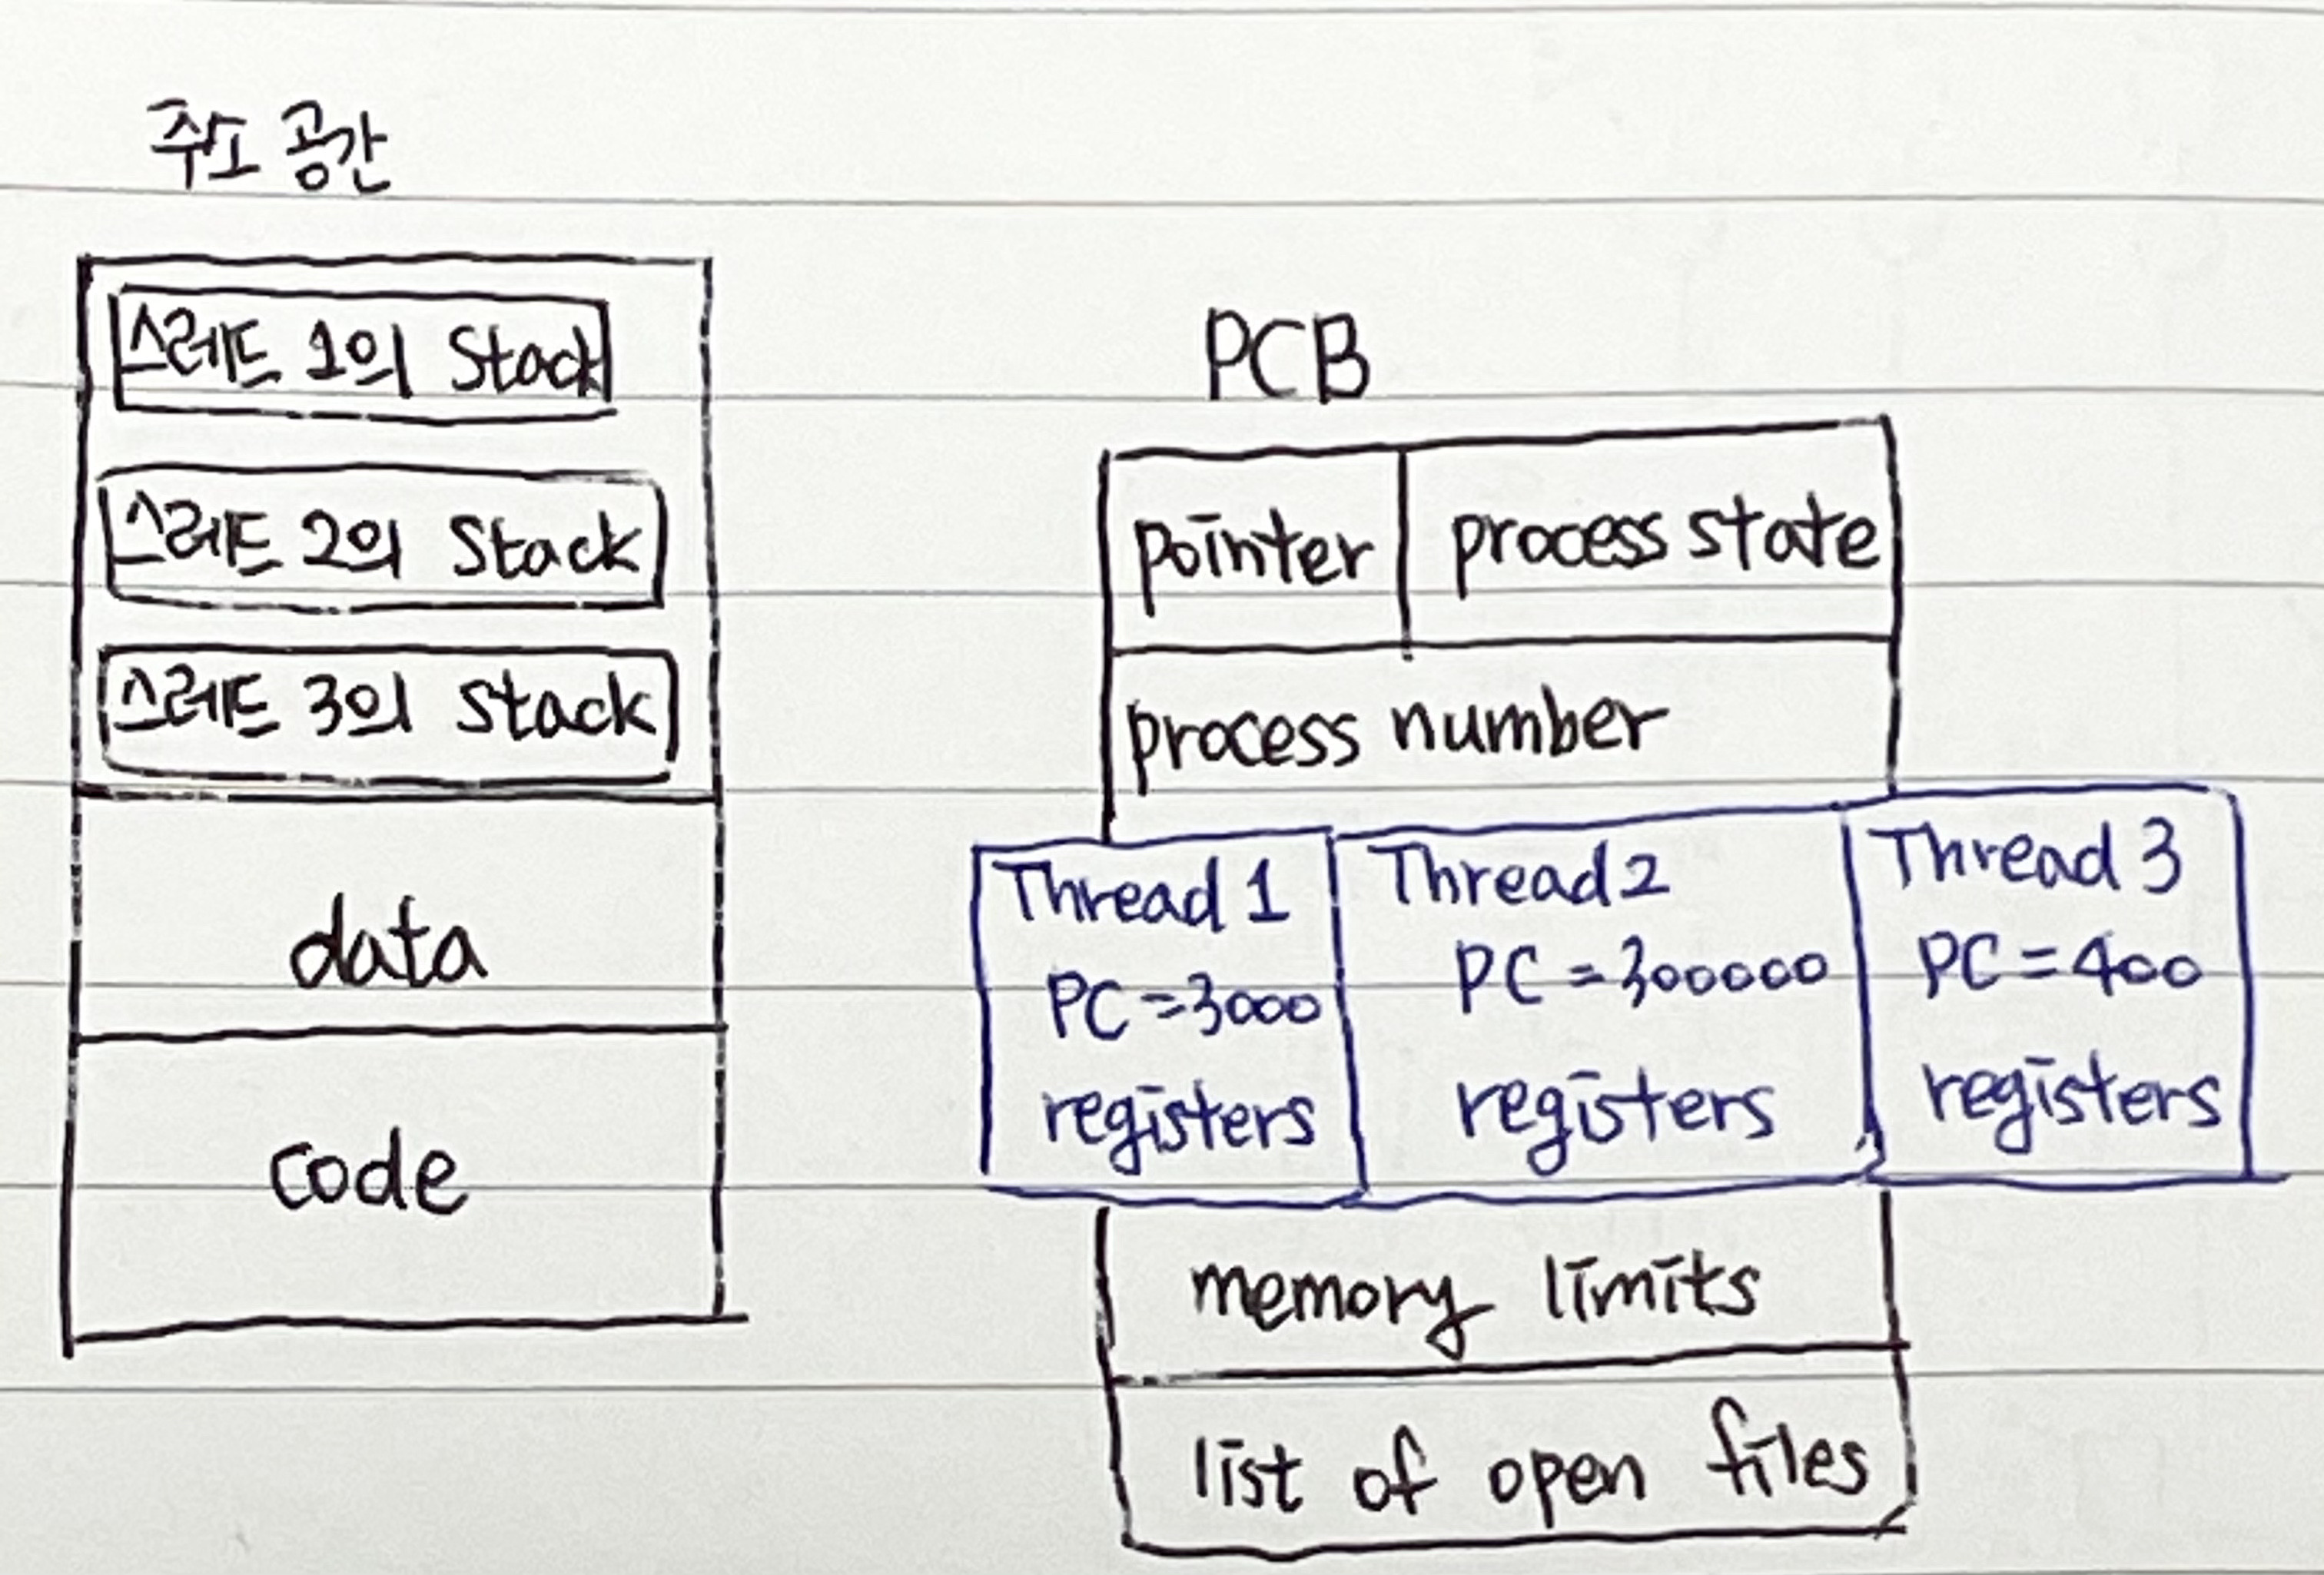 주소 공간
스레드 1의 Stack
스레드 2의 Stack
스레드 3의 Stack
data
code
PCB
pointer
process state
process number
Thread 1
PC = 3000
registers
Thread 2
PC = 300000
registers
Thread 3
PC = 400
registers
memory limits
list of open files